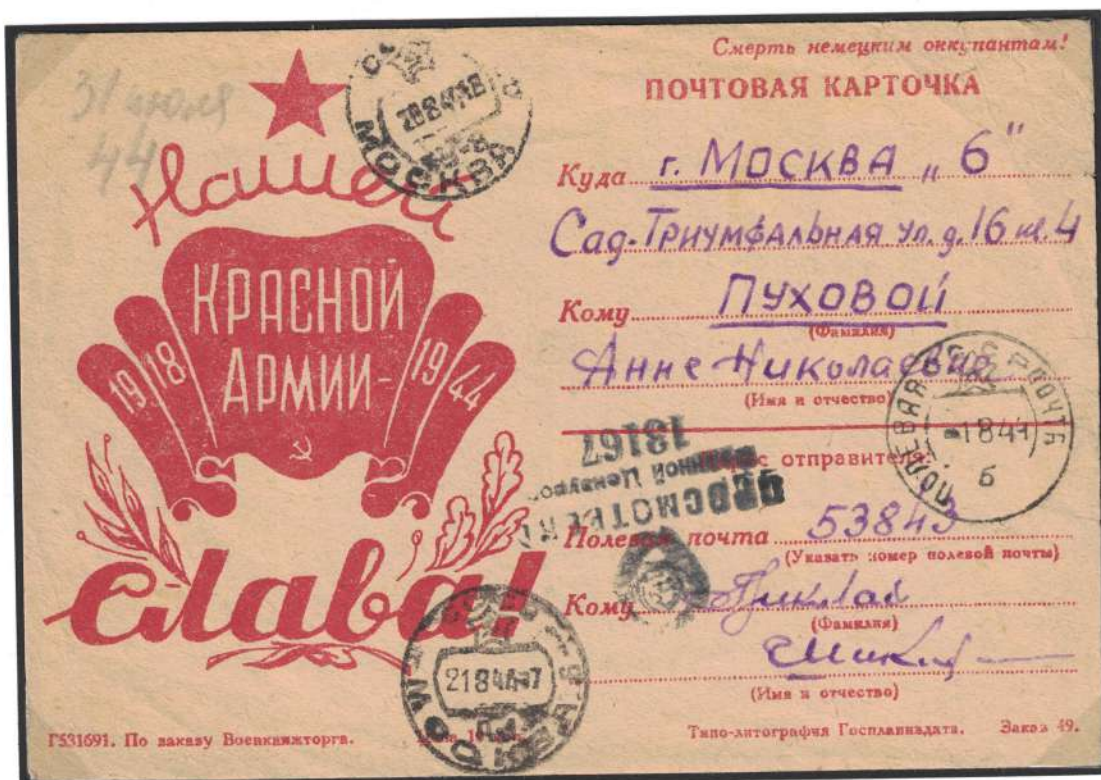 31 июля
44
Нашей
КРАСНОЙ
АРМИИ-
1918 1944
Слава!
Г531691. По заказу Военкнижторга.
МОСКВА
Смерть немецким оккупантам!
ПОЧТОВАЯ КАРТОЧКА
Куда г. МОСКВА „6"
Сад-ТРИУМФАЛЬНАЯ ул. д. 16 кв. 4
Кому ПУХОВОЙ
(Фамилия)
Анне Николаевне
(Имя и отчество)
отправителя:
ПРОСМОТРЕНО
Военной Цензурой
13167
ПОЛЕВАЯ ПОЧТА
1 8 44
б
Полевая почта 53843
(Указать номер полевой почты)
Кому
(Фамилия)
(Имя и отчество)
МОСКВА
21 8 44
Типо-литография Госпланиздата. Заказ 49.